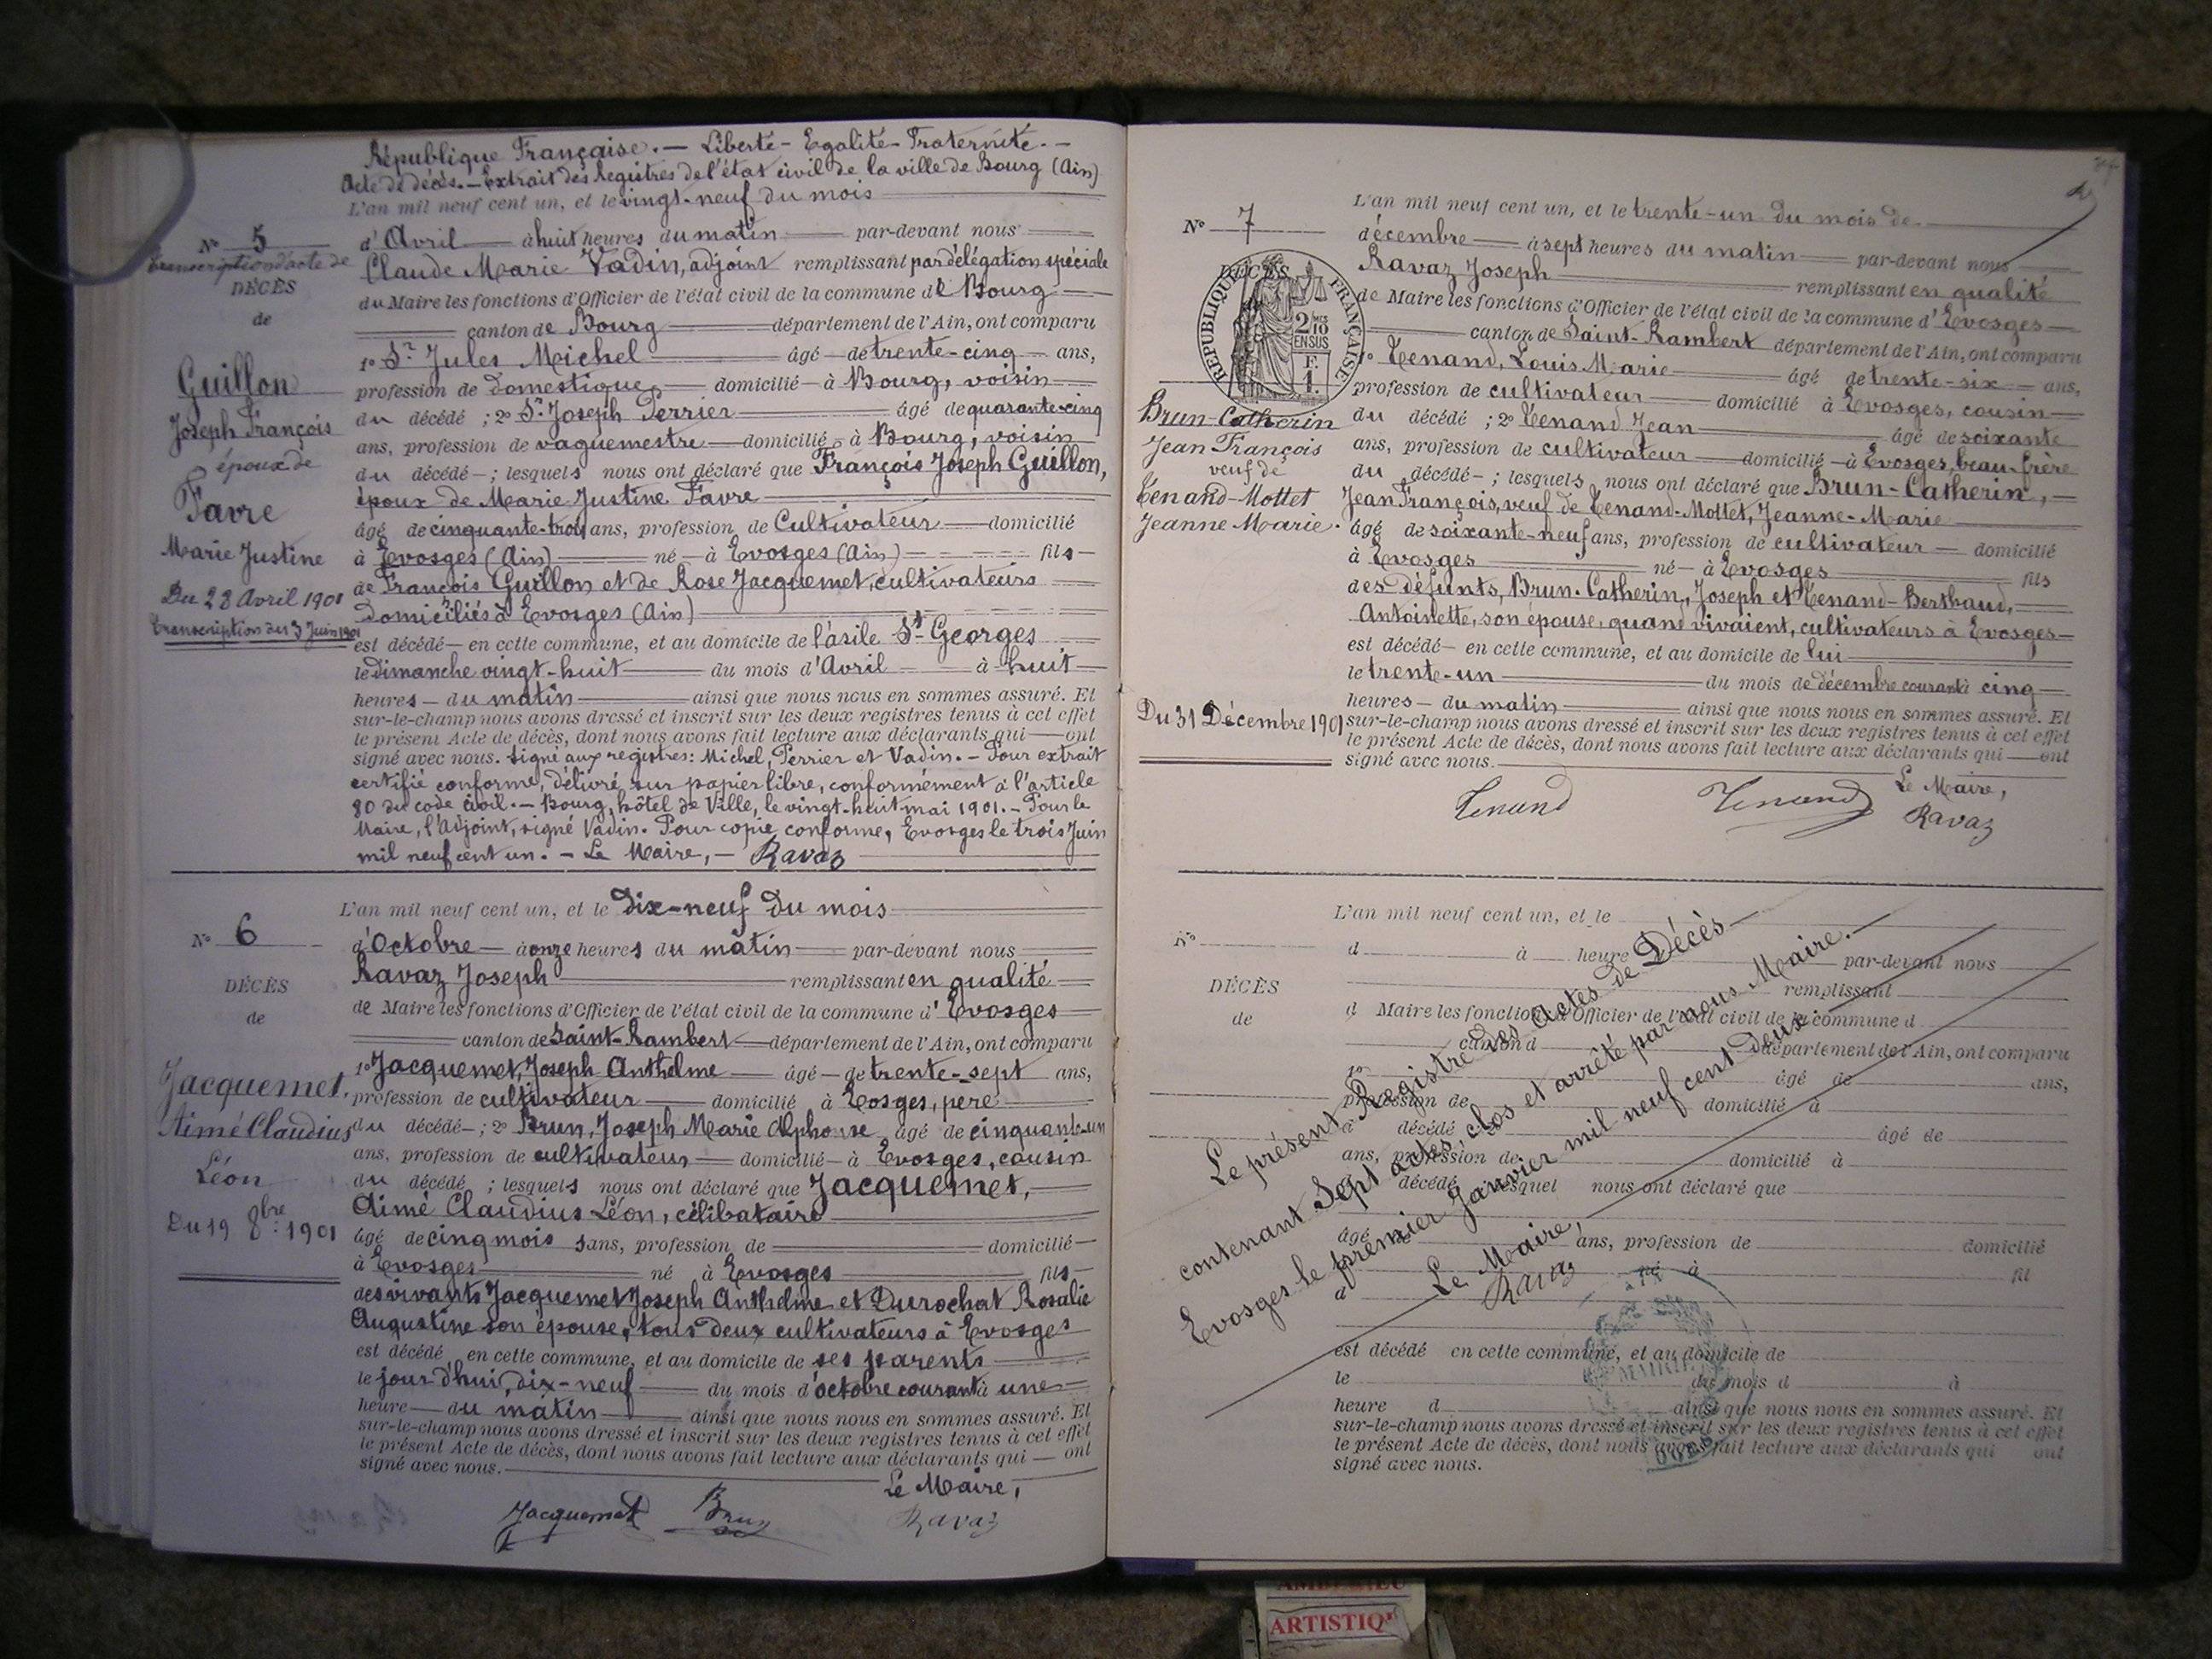 République Française. — Liberté - Egalité - Fraternité. —
Acte de décès. — Extrait des Registres de l'état civil de la ville de Bourg (Ain)
L'an mil neuf cent un, et le vingt-neuf du mois
N° 5
d'Avril à huit heures du matin par-devant nous
Transcription d'acte de
Claude Marie Vadin, adjoint remplissant par délégation spéciale
DÉCÈS
du Maire les fonctions d'Officier de l'état civil de la commune de Bourg
de
canton de Bourg département de l'Ain, ont comparu
1° Sr Jules Michel âgé de trente-cinq ans,
Guillon
profession de domestique domicilié à Bourg, voisin
Joseph François
du décédé ; 2° Sr Joseph Perrier âgé de quarante-cinq
ans, profession de vaguemestre domicilié à Bourg, voisin
époux de
du décédé ; lesquels nous ont déclaré que François Joseph Guillon,
Favre
époux de Marie Justine Favre
âgé de cinquante-trois ans, profession de Cultivateur domicilié
Marie Justine
à Evosges (Ain) né à Evosges (Ain) fils
de François Guillon et de Rose Jacquemet, cultivateurs
Du 28 Avril 1901
domiciliés à Evosges (Ain)
Transcription du 3 Juin 1901
est décédé en cette commune, et au domicile de l'asile St Georges
le dimanche vingt-huit du mois d'Avril à huit
heures du matin ainsi que nous nous en sommes assuré. Et
sur-le-champ nous avons dressé et inscrit sur les deux registres tenus à cet effet
le présent Acte de décès, dont nous avons fait lecture aux déclarants qui ont
signé avec nous. Signé aux registres: Michel, Perrier et Vadin. — Pour extrait
certifié conforme, délivré sur papier libre, conformément à l'article
80 du code civil. — Bourg, hôtel de Ville, le vingt-huit mai 1901. — Pour le
Maire, l'Adjoint, signé Vadin. Pour copie conforme, Evosges le trois Juin
mil neuf cent un. — Le Maire, — Ravaz
L'an mil neuf cent un, et le dix-neuf du mois
N° 6
d'Octobre à onze heures du matin par-devant nous
DÉCÈS
Ravaz Joseph remplissant en qualité
de
de Maire les fonctions d'Officier de l'état civil de la commune d'Evosges
canton de Saint-Rambert département de l'Ain, ont comparu
Jacquemet,
1° Jacquemet, Joseph Anthelme âgé de trente-sept ans,
profession de cultivateur domicilié à Eosges, père
Aimé Claudius
du décédé ; 2° Brun, Joseph Marie Alphonse âgé de cinquante-un
ans, profession de cultivateur domicilié à Evosges, cousin
Léon
du décédé ; lesquels nous ont déclaré que Jacquemet,
Du 19 8bre 1901
Aimé Claudius Léon, célibataire
âgé de cinq mois sans, profession de domicilié
à Evosges né à Evosges fils
des vivants Jacquemet Joseph Anthelme et Durochat Rosalie
Augustine son épouse, tous deux cultivateurs à Evosges
est décédé en cette commune, et au domicile de ses parents
le jour d'hui, dix-neuf du mois d'octobre courant à une
heure du matin ainsi que nous nous en sommes assuré. Et
sur-le-champ nous avons dressé et inscrit sur les deux registres tenus à cet effet
le présent Acte de décès, dont nous avons fait lecture aux déclarants qui ont
signé avec nous.
Le Maire,
Jacquemet Brun Ravaz
L'an mil neuf cent un, et le trente-un du mois de
N° 7
décembre à sept heures du matin par-devant nous
DÉCÈS
Ravaz Joseph remplissant en qualité
RÉPUBLIQUE FRANÇAISE
2/10 EN SUS
F.
1.
de Maire les fonctions d'Officier de l'état civil de la commune d'Evosges
canton de Saint-Rambert département de l'Ain, ont comparu
1° Tenand, Louis Marie âgé de trente-six ans,
profession de cultivateur domicilié à Evosges, cousin
Brun-Catherin
du décédé ; 2° Tenand Jean âgé de soixante
Jean François
ans, profession de cultivateur domicilié à Evosges, beau-frère
veuf de
du décédé ; lesquels nous ont déclaré que Brun-Catherin,
Tenand-Mottet
Jean François, veuf de Tenand-Mottet, Jeanne-Marie
Jeanne Marie.
âgé de soixante-neuf ans, profession de cultivateur domicilié
à Evosges né à Evosges fils
des défunts, Brun-Catherin, Joseph et Tenand-Berthaud,
Antoinette, son épouse, quand vivaient, cultivateurs à Evosges
est décédé en cette commune, et au domicile de lui
le trente-un du mois de décembre courant à cinq
heures du matin ainsi que nous nous en sommes assuré. Et
Du 31 Décembre 1901
sur-le-champ nous avons dressé et inscrit sur les deux registres tenus à cet effet
le présent Acte de décès, dont nous avons fait lecture aux déclarants qui ont
signé avec nous.
Le Maire,
Tenand Tenand Ravaz
L'an mil neuf cent un, et le
N°
d à heure par-devant nous
DÉCÈS
remplissant
de
d Maire les fonctions d'Officier de l'état civil de la commune d
canton d département de l'Ain, ont comparu
1° âgé de ans,
profession de domicilié à
d décédé âgé de
ans, profession de domicilié à
d décédé lesquel nous ont déclaré que
âgé de ans, profession de domicilié
à né à fil
d
est décédé en cette commune, et au domicile de
le du mois d à
heure d ainsi que nous nous en sommes assuré. Et
sur-le-champ nous avons dressé et inscrit sur les deux registres tenus à cet effet
le présent Acte de décès, dont nous avons fait lecture aux déclarants qui ont
signé avec nous.
Le présent Registre des actes de Décès
contenant Sept actes, clos et arrêté par nous Maire.
Evosges le premier Janvier mil neuf cent deux.
Le Maire,
Ravaz
MAIRIE
ARTISTIQ